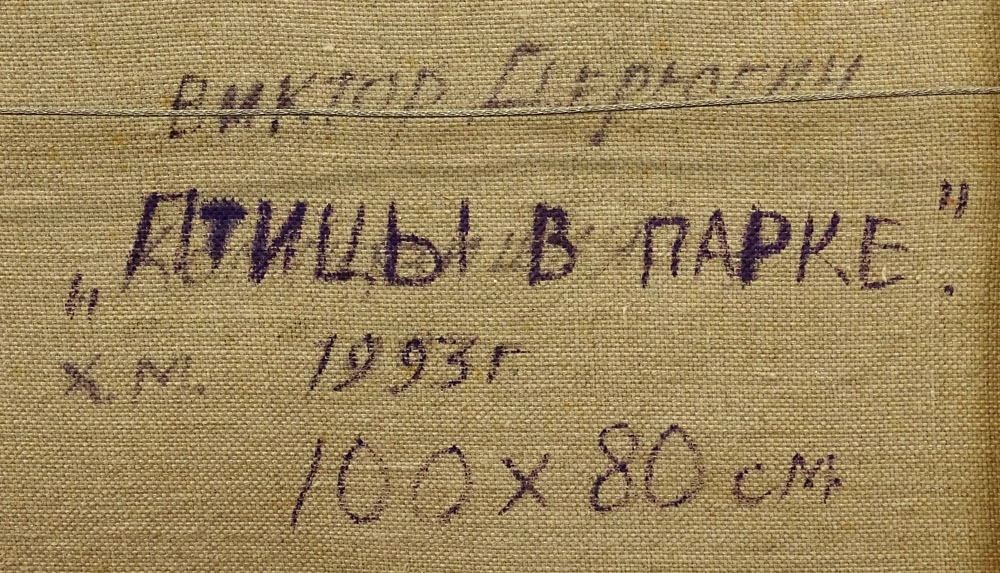 Виктор
„ПТИЦЫ В ПАРКЕ."
х.м. 1993г
100 х 80 см